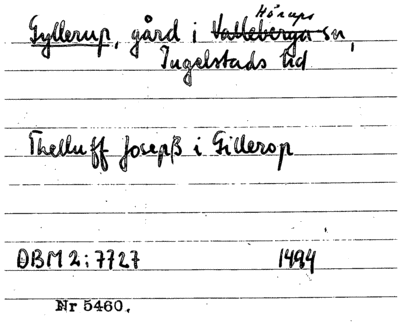 Hörups
Gyllerup, gård i Valleberga sn,
Ingelstads hd
Thelluff Josepß i Gillerop
DBM 2:7727 1494
Nr 5460.